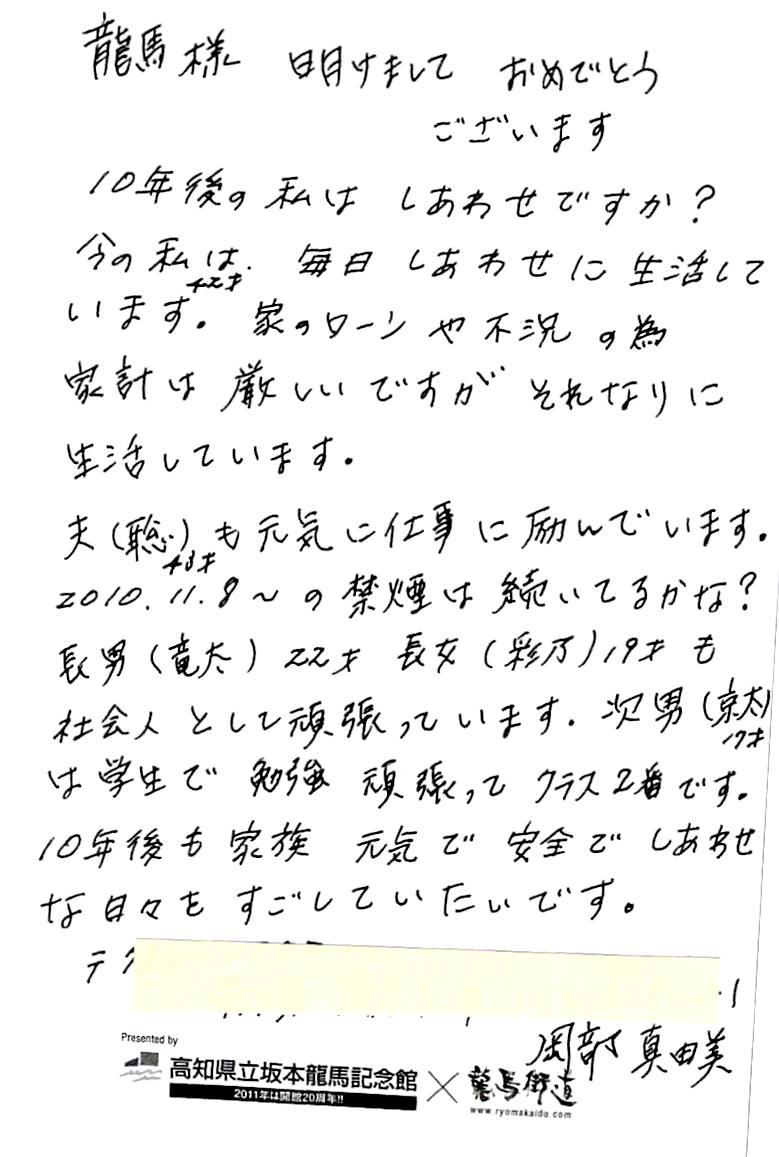 龍馬様 明けまして おめでとう
ございます
10年後の私は しあわせですか?
今の私は、毎日 しあわせに 生活して
42才
います。家のローンや不況の為
家計は厳しいですが それなりに
生活しています。
夫(聡)も元気に仕事に励んでいます。
48才
2010.11.8〜の禁煙は続いてるかな?
長男(竜太)22才 長女(彩乃)19才も
社会人として頑張っています。次男(京太)
17才
は学生で 勉強 頑張って クラス2番です。
10年後も家族 元気で安全で しあわせ
な日々を すごしていたいです。
岡部 真由美
Presented by
高知県立坂本龍馬記念館 × 龍馬街道
2011年は開館20周年!!
www.ryomakaido.com